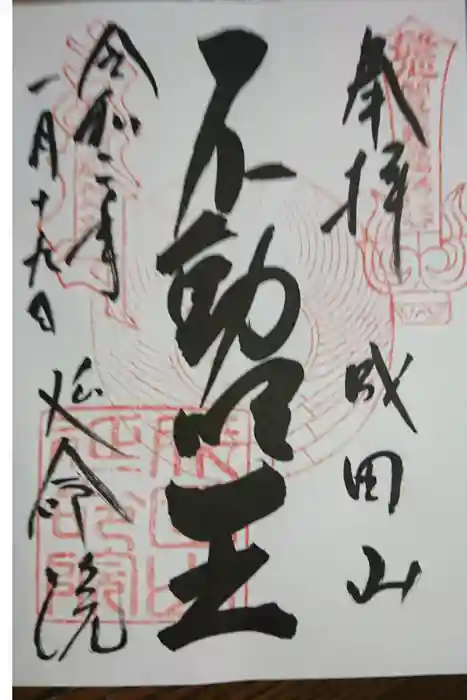 奉拝 成田山
不動明王
令和二年
一月十九日 延命院